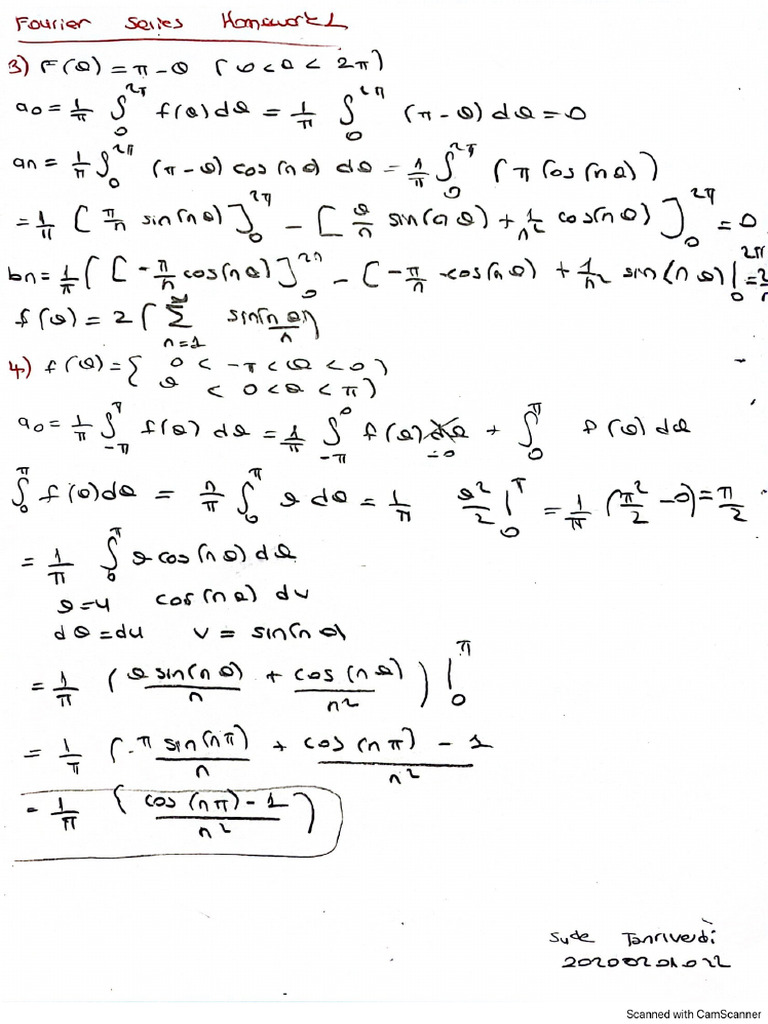 Fourier Series Homework 1
3) F(θ) = π - θ (0 < θ < 2π)
a0 = 1/π ∫_0^{2π} f(θ) dθ = 1/π ∫_0^{2π} (π - θ) dθ = 0
an = 1/π ∫_0^{2π} (π - θ) cos(nθ) dθ = 1/π ∫_0^{2π} (π cos(nθ))
= 1/π [π/n sin(nθ)]_0^{2π} - [θ/n sin(nθ) + 1/n² cos(nθ)]_0^{2π} = 0
bn = 1/π ( [-π/n cos(nθ)]_0^{2π} - [-π/n cos(nθ) + 1/n² sin(nθ)|_0^{2π} = 2/n
f(θ) = 2 ( Σ_{n=1}^∞ sin(nθ)/n
4) f(θ) = { 0 < -π < θ < 0)
θ < 0 < θ < π)
a0 = 1/π ∫_{-π}^{π} f(θ) dθ = 1/π ∫_{-π}^0 f(θ) dθ + ∫_0^π f(θ) dθ
=0
∫_0^π f(θ) dθ = 1/π ∫_0^π θ dθ = 1/π θ²/2 |_0^π = 1/π (π²/2 - 0) = π/2
= 1/π ∫_0^π θ cos(nθ) dθ
θ = u cos(nθ) dv
dθ = du v = sin(nθ)
= 1/π (θ sin(nθ)/n + cos(nθ)/n²) |_0^π
= 1/π (-π sin(nπ)/n + cos(nπ) - 1/n²
= 1/π (cos(nπ) - 1/n²)
Sude Tanrıverdi
20200201022
Scanned with CamScanner